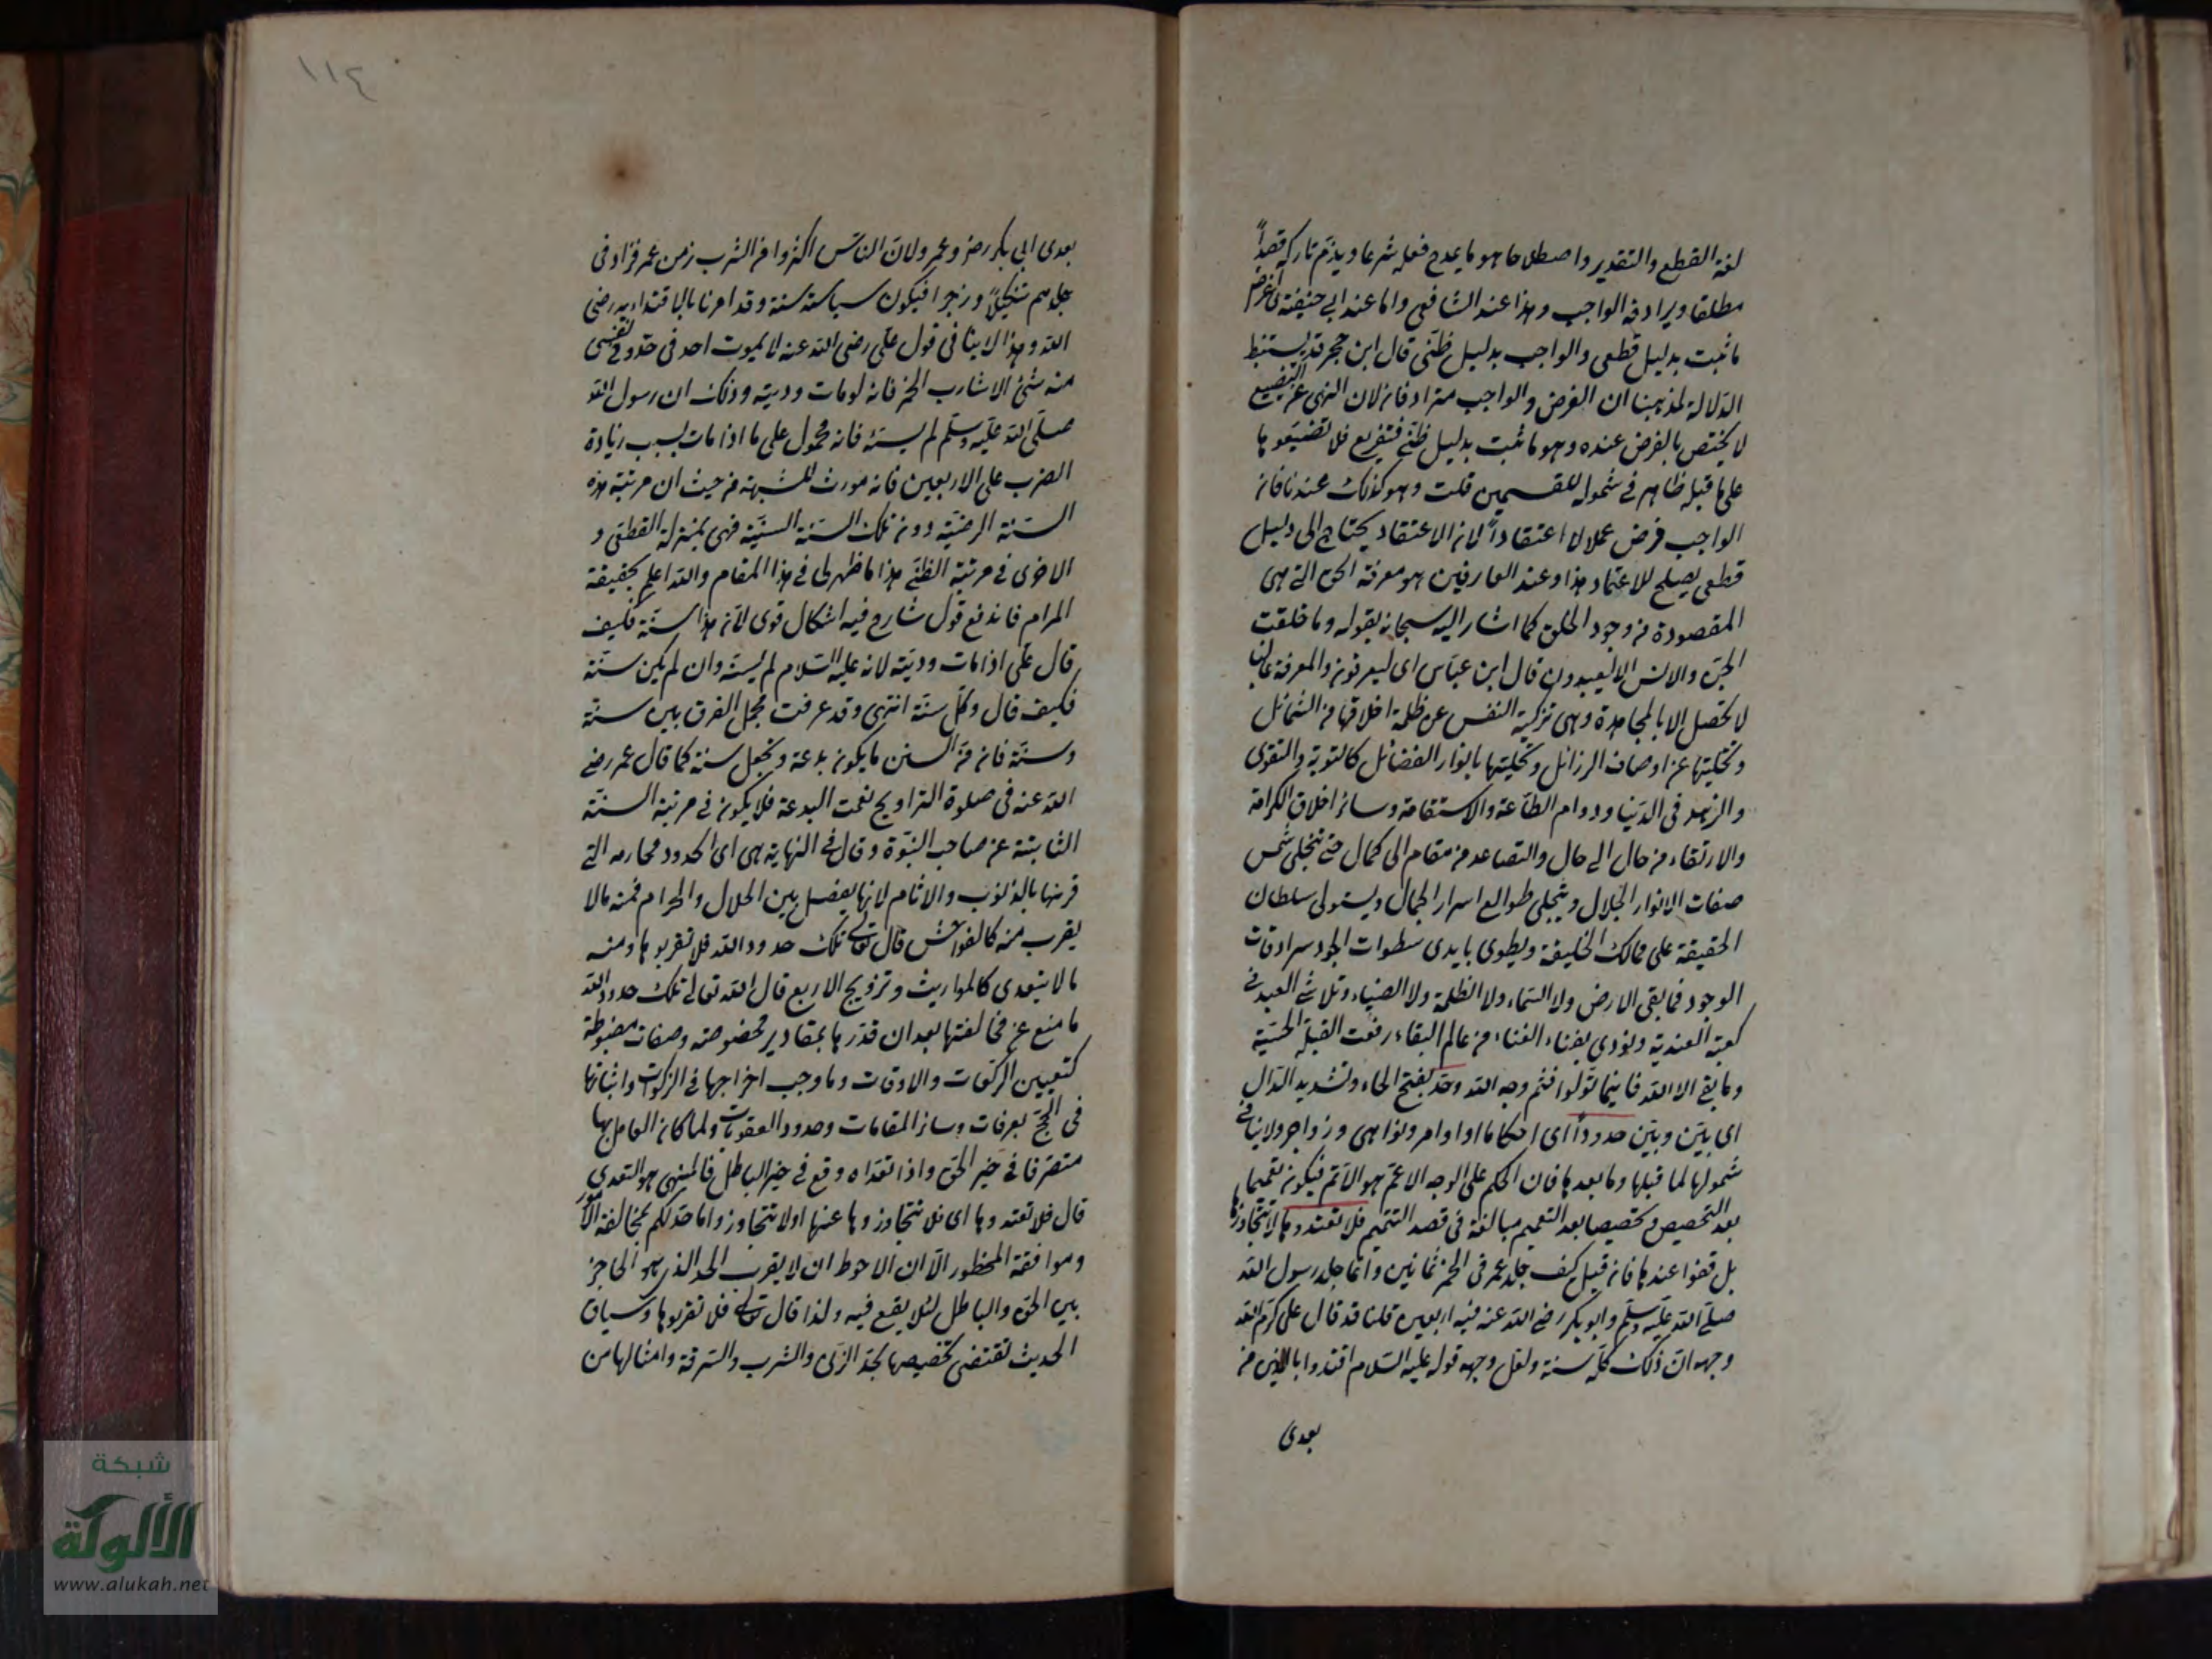 لغة القطع والتقدير واصطلاحا هو ما يمدح فعله شرعا ويذم تاركه قصداً
مطلقا ويرادفه الواجب وهذا عند الشافعي واما عند ابي حنيفة فالفرض
ما ثبت بدليل قطعي والواجب بدليل ظنّي قال ابن حجر قد يستنبط
الدلالة لمذهبنا ان الفرض والواجب مترادفان لان النهي عن التضييع
لا يختص بالفرض عنده وهو ما ثبت بدليل ظنّي فتفريع فلا تضيّعوها
على ما قبله ظاهر في شموله للقسمين قلت وهو كذلك عندنا فان
الواجب فرض عملا لا اعتقاداً لان الاعتقاد يحتاج الى دليل
قطعي يصلح للاعتماد هذا وعند العارفين هو معرفة الحق التي هي
المقصودة من وجود الخلق كما اشار اليه سبحانه بقوله وما خلقت
الجن والانس الا ليعبدون قال ابن عباس اي ليعرفون والمعرفة
لا تحصل الا بالمجاهدة وهي تزكية النفس عن ظلمة اخلاقها من الشمائل
وتخليتها عن اوصاف الرذائل وتحليتها بانوار الفضائل كالتوبة والتقوى
والزهد في الدنيا ودوام الطاعة والاستقامة وسائر اخلاق الكرامة
والارتقاء من حال الى حال والتصاعد من مقام الى كمال حتى تتجلى شمس
صفات الانوار الجلال وينجلي طوالع اسرار الجمال ويستولي سلطان
الحقيقة على ممالك الخليقة ويطوى بايدي سطوات الجود سرادقات
الوجود فما بقي الارض ولا السماء ولا الظلمة ولا الضياء وتلاشى العبد في
كعبة العندية ونودي بفناء الفناء من عالم البقاء رفعت القبلة الحسّية
وما بقي الا الله فاينما تولّوا فثم وجه الله وحدّ بفتح الحاء وتشديد الدال
اي بيّن وبيّن حدوداً اي احكاما اوامر ونواهي وزواجر ولا ينافي
شمولها لما قبلها وما بعدها فان الحكم على الوجه الاعم هو الاتم فيكون تعميما
بعد التخصيص وتخصيصا بعد التعميم مبالغة في قصد التتميم فلا تعتدوها لا تتجاوزوها
بل قفوا عندها فان قيل كيف جلد عمر في الخمر ثمانين وانما جلد رسول الله
صلى الله عليه وسلم وابو بكر رضي الله عنه فيه اربعين قلنا قد قال علي كرم الله
وجهه ان ذلك كله سنة ولعل وجهه قوله عليه السلام اقتدوا بالذين من
بعدي
١١٤
بعدي ابي بكر رضي وعمر ولان الناس اكثروا من الشرب زمن عمر فزاد في
جلدهم تنكيلاً وزجرا فيكون سياسة سنة وقد امرنا بالاقتداء به رضي
الله وهذا لا ينافي قول علي رضي الله عنه لا يموت احد في حد وفي نفسي
منه شئ الا شارب الخمر فانه لو مات وديته وذلك ان رسول الله
صلى الله عليه وسلم لم يسنّه فانه محمول على ما اذا مات بسبب زيادة
الضرب على الاربعين فانه مورث للشبهة من حيث ان مرتبة هذه
السنة الرضيّة دون تلك السنة السنيّة فهي بمنزلة القطعي و
الاخرى في مرتبة الظني هذا ما ظهر لي في هذا المقام والله اعلم بحقيقة
المرام فاندفع قول شارح فيه اشكال قوي لان هذا سنّة فكيف
قال علي اذا مات وديته لانه عليه السلام لم يسنّه وان لم يكن سنة
فكيف قال وكل سنّة انتهى وقد عرفت مجمل الفرق بين سنة
وسنة فان من السنن ما يكون بدعة ويجعل سنة كما قال عمر رضي
الله عنه في صلوة التراويح نعمت البدعة فلا يكون في مرتبة السنة
الثابتة عن صاحب النبوة وقال في النهاية هي اي الحدود محارمه التي
قرنها بالذنوب والاثام لانها يفصل بين الحلال والحرام فمنه ما لا
يقرب منه كالفواحش قال تعالى تلك حدود الله فلا تقربوها ومنه
ما لا يتعدى كالمواريث وتزويج الاربع قال الله تعالى تلك حدود الله
ما منع عن مخالفتها بعد ان قدرها بمقادير مخصوصة وصفات مضبوطة
كتعيين الركعات والاوقات وما وجب اخراجها في الزكوات واثباتها
في الحج بعرفات وسائر المقامات وحدود العقوبات ولما كان العامل بها
متصرفا في حيز الحق واذا تعداه وقع في حيز الباطل فالمنهي هو التعدي
قال فلا تعتدوها اي فلا تتجاوزوها عنها اولا تتجاوزوا ما حدّ لكم بمخالفة المأمور
وموافقة المحظور الا ان الاحوط ان لا يقرب الحد الذي هو الحاجز
بين الحق والباطل لئلا يقع فيه ولذا قال تعالى فلا تقربوها وسياق
الحديث تقتضي تخصيصها بحد الزنى والشرب والسرقة وامثالها من
شبكة
الألوكة
www.alukah.net